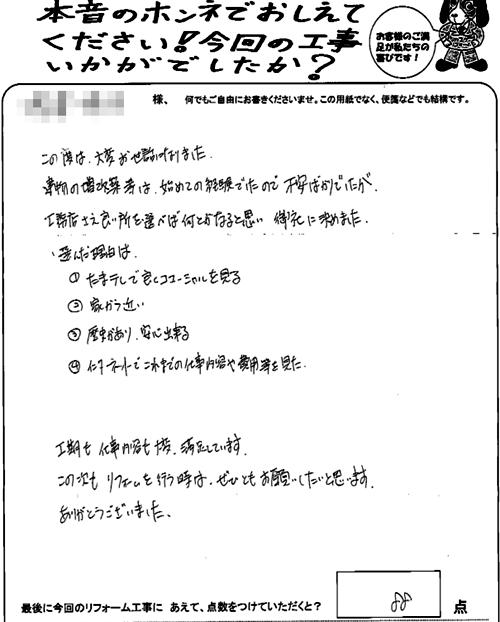 本音のホンネでおしえて
ください!今回の工事
いかがでしたか?
お客様のご満
足が私たちの
喜びです!
様、 何でもご自由にお書きくださいませ。この用紙でなく、便箋などでも結構です。
この度は、大変お世話になりました。
建物の増改築等は、始めての経験でしたので 不安ばかりでしたが、
工務店さえ良い所を選べば何とかなると思い 御社に決めました。
選んだ理由は、
① たまテレで良くコマーシャルを見る
② 家から近い
③ 歴史があり、安心出来る
④ インターネットでこれまでの仕事内容や費用等を見た。
工期も 仕事内容も 大変、満足しています。
この次も リフォームを行う時は、ぜひとも お願いしたいと思います。
ありがとうございました。
最後に今回のリフォーム工事に あえて、点数をつけていただくと?
点